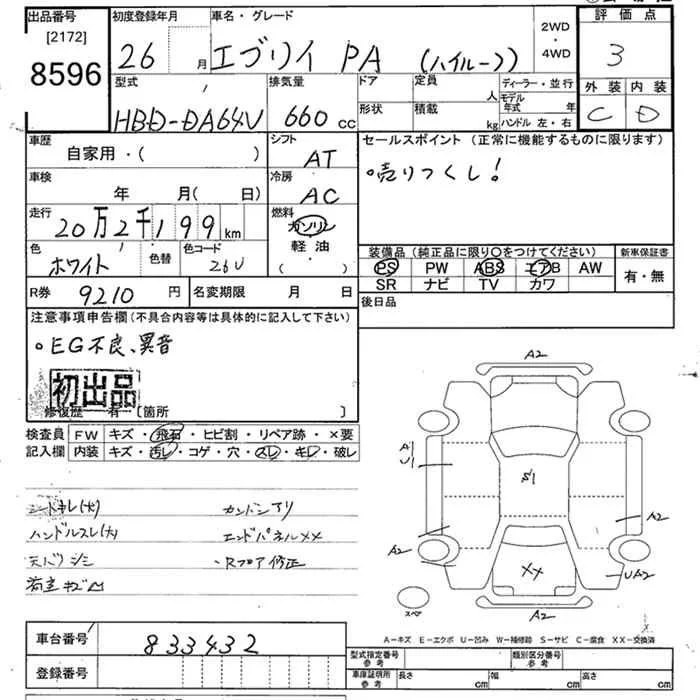 出品番号
[2172]
8596
初度登録年月
26 月
車名・グレード
エブリイ PA (ハイルーフ)
2WD
・
4WD
評価点
3
外装 内装
C D
型式
HBD-DA64V
排気量
660 cc
ドア
形状
定員
人
積載
kg
ディーラー・並行
モデル年式 年
ハンドル 左・右
車歴
自家用・( )
シフト
AT
セールスポイント (正常に機能するものに限ります)
・売りつくし!
車検
年 月( 日)
冷房
AC
走行
20万2千199 km
燃料
ガソリン
軽油・
( )
色
ホワイト
色替
色コード
26U
装備品(純正品に限り〇をつけてください)
PS PW ABS エアB AW
SR ナビ TV カワ
新車保証書
有・無
R券 9210 円
名変期限 月 日
後日品
注意事項申告欄(不具合内容等は具体的に記入して下さい)
・EG不良、異音
初出品
修復歴 有 [箇所 ]
検査員
記入欄
FW キズ・飛石・ヒビ割・リペア跡・×要
内装 キズ・汚レ・コゲ・穴・スレ・キレ・破レ
シートキレ(大)
ハンドルスレ(大)
天バリシミ
荷室キズ凹
カントンアリ
エンドパネルXX
・Rフロア修正
A2
A1
U1
S1
A2
A2
XX
UA2
A2
スペア
A-キズ E-エクボ U-凹み W-補修跡 S-サビ C-腐食 XX-交換済
車台番号 833432
登録番号
型式指定番号
参考
類別区分番号
参考
車庫証明所
参考
長さ cm
幅 cm
高さ cm